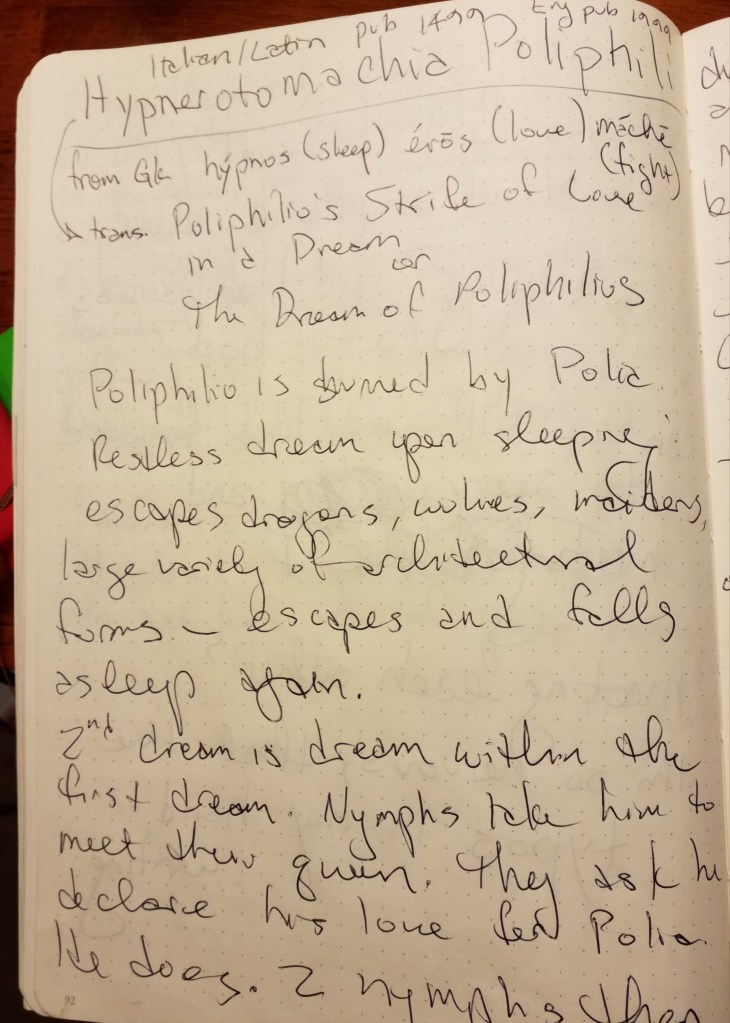 Italian/Latin pub 1499 Eng pub 1999
Hypnerotomachia Poliphili
from Gk hýpnos (sleep) érōs (love) máchē
(fight)
trans. Poliphilio's Strife of Love
in a Dream
or
The Dream of Poliphilius
Poliphilio is by Polia.
Restless dream upon sleeping
escapes dragons, wolves, maidens,
large variety of architectural
forms – escapes and falls
asleep again.
2nd dream is dream within the
first dream. Nymphs take him to
meet their queen. They ask he
declare his love for Polia.
He does. 2 nymphs then
92